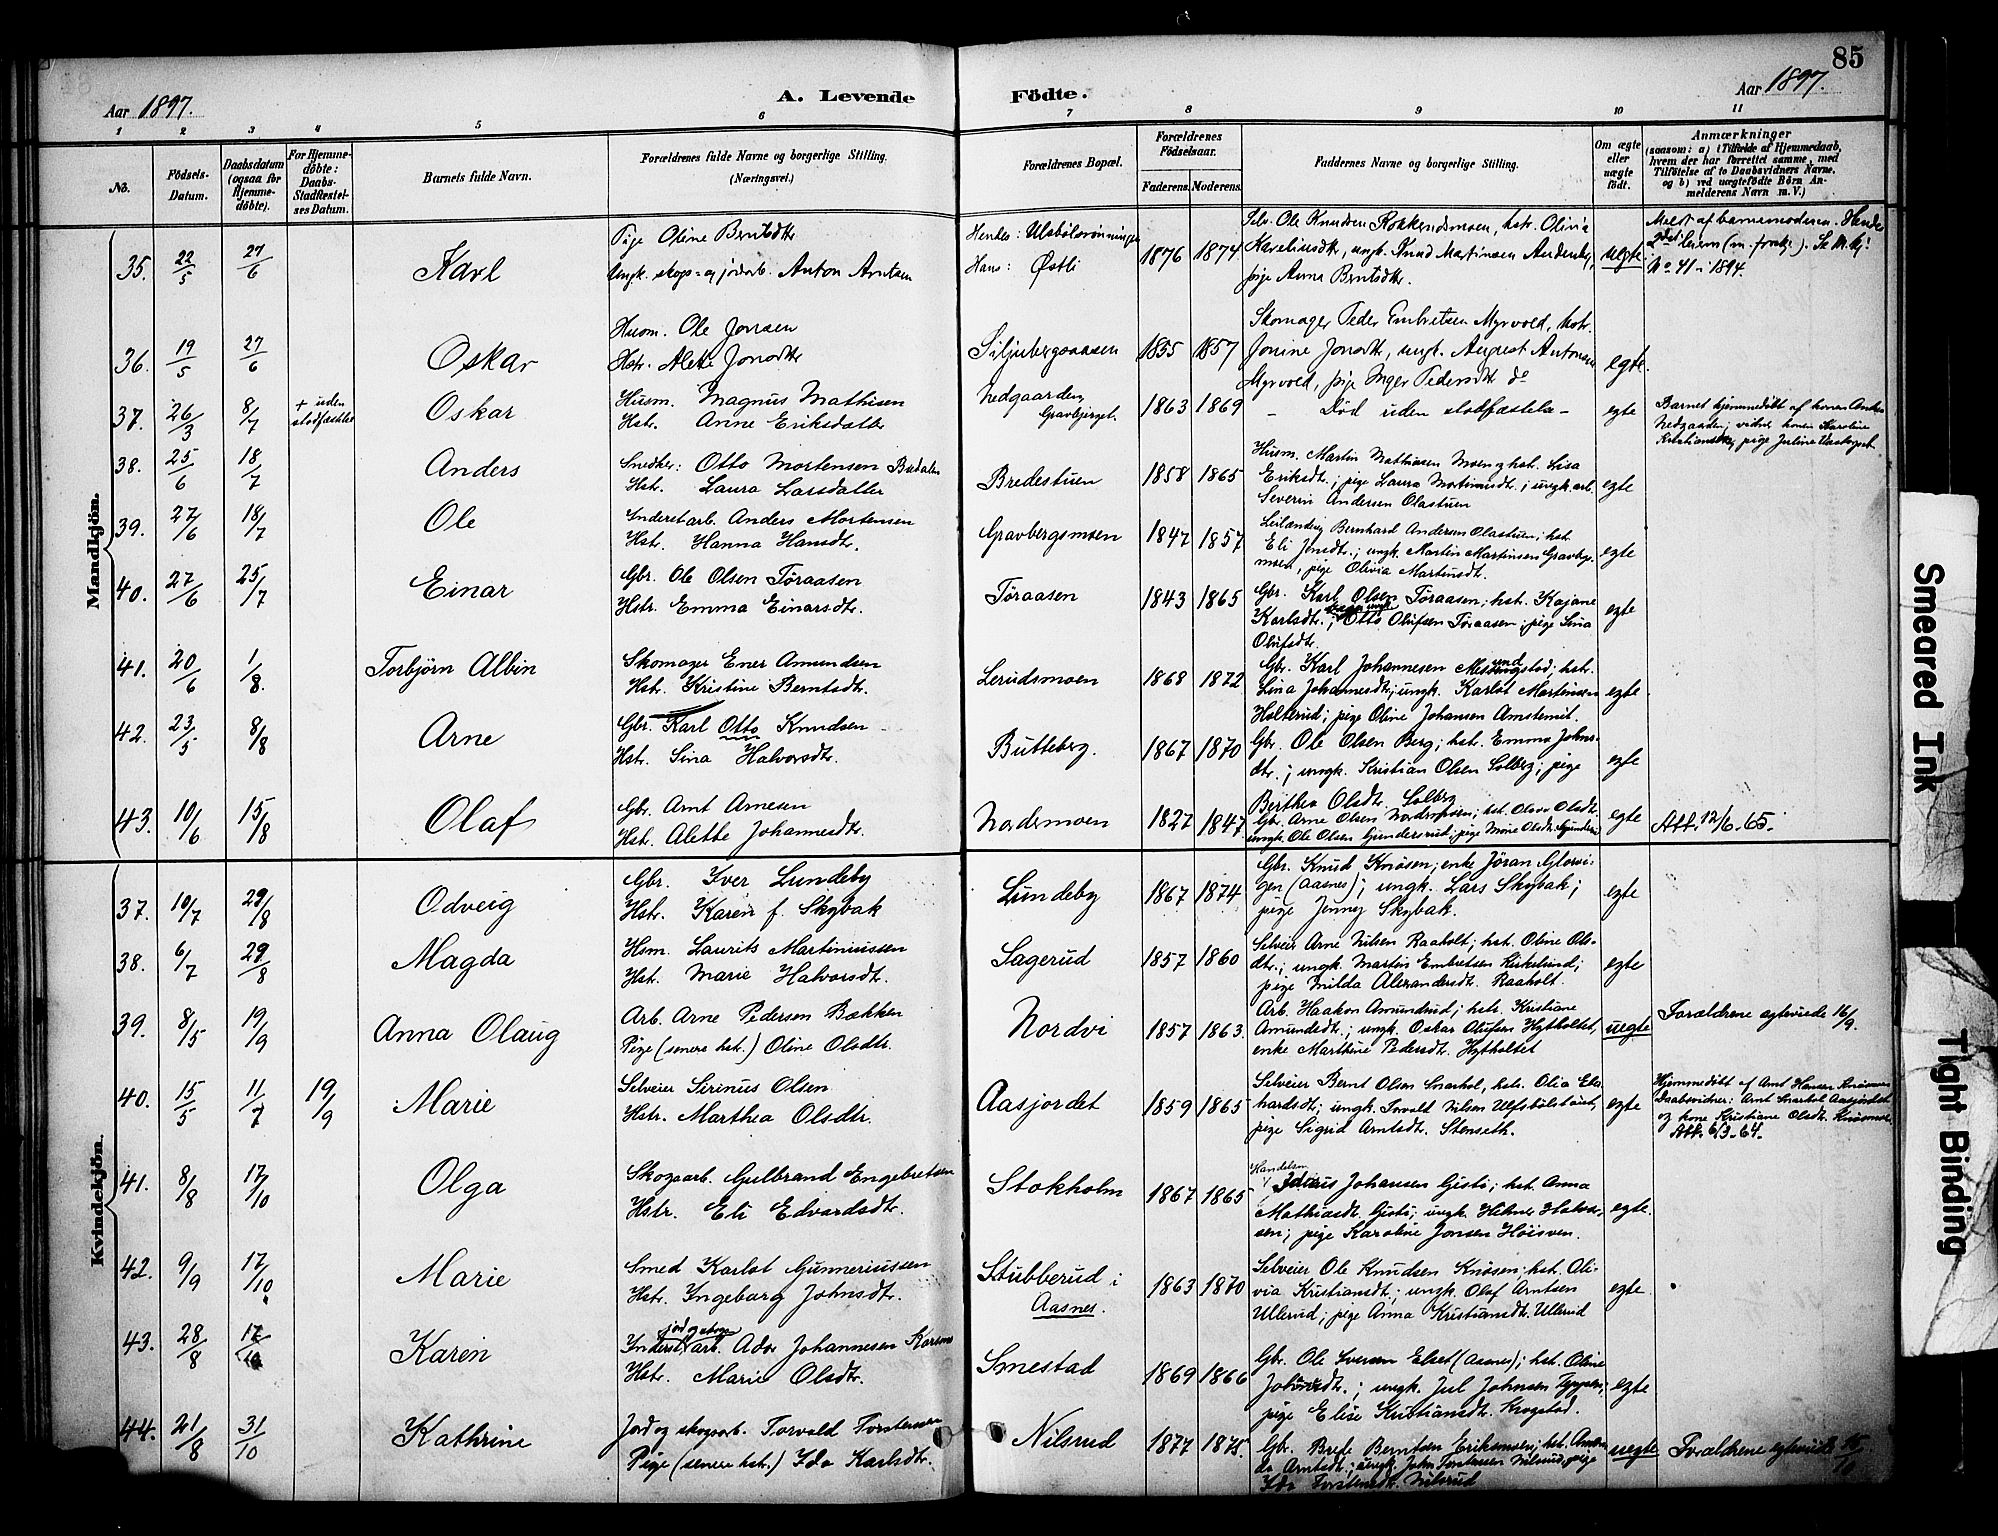 85
Aar 1897.
A. Levende Födte.
Aar 1897.
1 2 3 4 5 6 7 8 9 10 11
No.
Födsels-Datum.
Daabsdatum (ogsaa for Hjemme-döbte).
For Hjemme-döbte: Daabs-Stadfæstel-ses Datum.
Barnets fulde Navn.
Forældrenes fulde Navne og borgerlige Stilling.
(Næringsvei.)
Forældrenes Bopæl.
Forældrenes Födselsaar.
Faderens. Moderens.
Faddernes Navne og borgerlige Stilling.
Om ægte eller uægte födt.
Anmærkninger
(saasom: a) i Tilfælde af Hjemmedaab,
hvem der har forrettet samme, med
Tilföielse af to Daabsvidners Navne,
og b) ved uægtefödte Börn An-
melderens Navn m. V.)
Mandkjön.
35. 22/5 27/6 Karl
Pige Oline Berntsdtr
Ungk. skogs- og jordarb. Anton Arntsen
Hendes: Ulsbölsrönningen
Hans: Östli
1876 1874
Selv. Ole Knudsen Rokkendsmoen, hstr. Olivia
Kareliusdtr, ungk. Knud Martinsen
pige Anna Berntsdtr.
uegte
Meldt af barnemoderen. Hendes
2det leierm.
No 41 i 1894.
36. 19/5 27/6 Oskar
Husm. Ole Jonsen
Hstr. Alette Jonsdtr
Siljubergsaasen
1855 1857
Skomager Peder Embretsen Myrvold, hstr.
Jonine Jonsdtr, ungk. August Antonsen
Myrvold, pige Inger Pedersdtr do
egte.
37. 26/3 8/7 + uden stadfæstelse Oskar
Husm. Magnus Mathisen
Hstr. Anne Eriksdatter
Nedgaarden
Gravbjerget.
1863 1869
- Död uden stadfæstelse -
egte
Barnet hjemmedöbt af konen
Nedgaarden; vidner konen Karoline
Kristiansdtr, pige Juline
38. 25/6 18/7 Anders
Snedker: Otto Mortensen
Hstr. Laura Larsdatter
Bredestuen
1858 1865
Husm. Martin Mathiasen Moen og hst. Lisa
Eriksdt.; pige Laura Martinusdt.; ungk. arb.
Severin Andersen Olastuen
egte
39. 27/6 18/7 Ole
Inderstarb. Anders Mortensen
Hst. Hanna Hansdt.
Gravbergsmoen
1847 1857
Leilændig Bernhard Andersen Olastuen; hst.
Eli Jensdt.; ungk. Martin Martinsen Gravbg.
moen, pige Olivia Martinusdt.
egte
40. 27/6 25/7 Einar
Gbr. Ole Olsen Töraasen
Hstr. Emma Einarsdtr.
Töraasen
1843 1865
Gbr. Karl Olsen Töraasen; hst. Kajane
Karlsdtr.; Otto Olufsen Töraasen; pige Lina
Olufsdtr.
egte
41. 20/6 1/8. Torbjörn Albin
Skomager Ener Amundsen
Hstr. Kristine Berntsdtr.
Lerudsmoen
1868 1872
Gbr. Karl Johannesen; hstr.
Lina Johannesdtr; ungk. Karlot Martinsen
Holterud; pige Oline Johansen
egte
42. 23/5 8/8 Arne
Gbr. Karl Otto Knudsen
Hstr. Lina Halvorsdtr.
Butteberg.
1867 1870
Gbr. Ole Olsen Berg; hstr. Emma Johns-
dtr.; ungk. Kristian Olsen Solberg; pige
Berthea Olsdtr. Solberg
egte
43. 10/6 15/8 Olaf
Gbr. Arnt Arnesen
Hstr. Alette Johannesdtr.
Nordermoen
1827 1847
Gbr. Arne Olsen; hst. Olava Olsdt.
ungk. Ole Olsen Gundersrud; pige
egte
Att. 12/6-65.
Kvindekjön.
37. 10/7 29/8 Odveig
Gbr. Iver Lundeby
Hstr. Karen f. Skybak
Lundeby
1867 1874
Gbr. Knud Knösen; enke Jöran Glorvi-
gen (Aasnes); ungk. Lars Skybak;
pige Jenny Skybak.
egte
38. 6/7 29/8 Magda
Hsm. Laurits Martiniussen
Hst. Marie Halvorsdt.
Sagerud
1857 1860
Selveier Arne Nilsen Raaholt; hst. Oline Ols-
dtr.; ungk. Martin Embretsen Kirkelund;
pige Milda Alexandersdt. Raaholt.
egte
39. 8/5 19/9 Anna Olaug
Arb. Arne Pedersen Bækken
Pige (senere hst.) Oline Olsdtr.
Nordvi
1857 1863.
Arb. Haakon Amundrud; hstr. Kristiane
Amundsdt.; ungk. Oskar Olufsen Hytholtet,
enke Marthine Pedersdt. Hytholtet
uegte
Forældrene egteviede 16/9.
40. 15/5 11/7 19/9 Marie
Selveier Sirinus Olsen
Hstr. Marthea Olsdtr.
Aasjordet
1859 1865
Selveier Bernt Olsen Snarhol, hst. Olia Eber-
hardsdt; ungk. Torvald Nilsen,
pige Sigrid Arntsdt. Stenseth.
egte
Hjemmedöbt af Arnt Hansen Knösmoen
Daabsvidner: Arnt Snarhol Aasjordet
og kone Kristiane Olsdt. Knösmoen.
Att. 6/3-64.
41. 8/8 17/10 Olga
Skogsarb. Gulbrand Engebretsen
Hstr. Eli Edvardsdtr.
Stokholm
1867 1865
Handelsm.
Julius Johansen Gjesti; hst. Anna
Mathiasdt. Gjesti; ungk. Helmer Halvor-
sen; pige Karoline Jonsen Höisven.
egte.
42. 9/9 17/10 Marie
Smed Karlot Gunneriussen
Hstr. Ingeborg Johnsdtr.
Stubberud i
Aasnes.
1863 1870
Selveier Ole Knudsen Knösen; hst. Oli-
via Kristiansdt.; ungk. Olaf Arntsen
Ullerud; pige Anna Kristiansdt. Ullerud
egte.
43. 28/8 17/10 Karen
jord og skogs
Inderst arb. Ador Johannesen
Hst. Marie Olsdtr.
Smestad
1869 1866
Gbr. Ole Iversen Elset (Aasnes); hst. Oline
Johnsdtr.; ungk. Jul Johnsen;
pige Elise Kristiansdt. Krogstad.
egte
44. 21/8 31/10 Kathrine
Jord og skogsarb. Torvald Torstensen
Pige (senere hst.) Ida Karlsdtr.
Nilsrud
1877 1875.
Gbr. Brede Berntsen Eriksmoen; hst. Aman-
da Arntsdt.; ungk. John Torstensen Nilsrud; pige
Ida Torstensdt. Nilsrud
uegte
Forældrene egteviede 15/10
Smeared Ink
Tight Binding